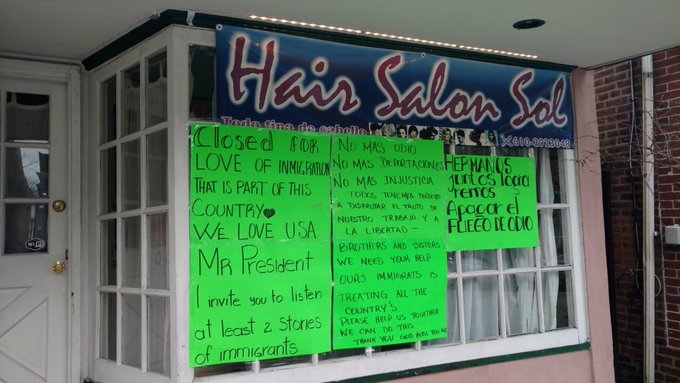 Hair Salon Sol
Todo tipo de cabello
610-3933048
Closed FOR
LOVE OF INMIGRATION
THAT IS PART OF THIS
COUNTRY
WE LOVE USA
MR PRESIDENT
I invite you to listen
at least 2 stories
of immigrants.
NO MAS ODIO
NO MAS DEPORTACIONES
NO MAS INJUSTICIA
TODOS TENEMOS DERECHO
A DISFRUTAR EL FRUTO DE
NUESTRO TRABAJO Y A
LA LIBERTAD —
BROTHERS AND SISTERS
WE NEED YOUR HELP
OURS IMMIGRATS IS
TREATING ALL THE
COUNTRY'S.
PLEASE HELP US TOGETHER
WE CAN DO THIS
THANK YOU GOD BLESS YOU ALL
HERMANOS
juntos lograremos
Apagar el
FUEGO DE ODIO